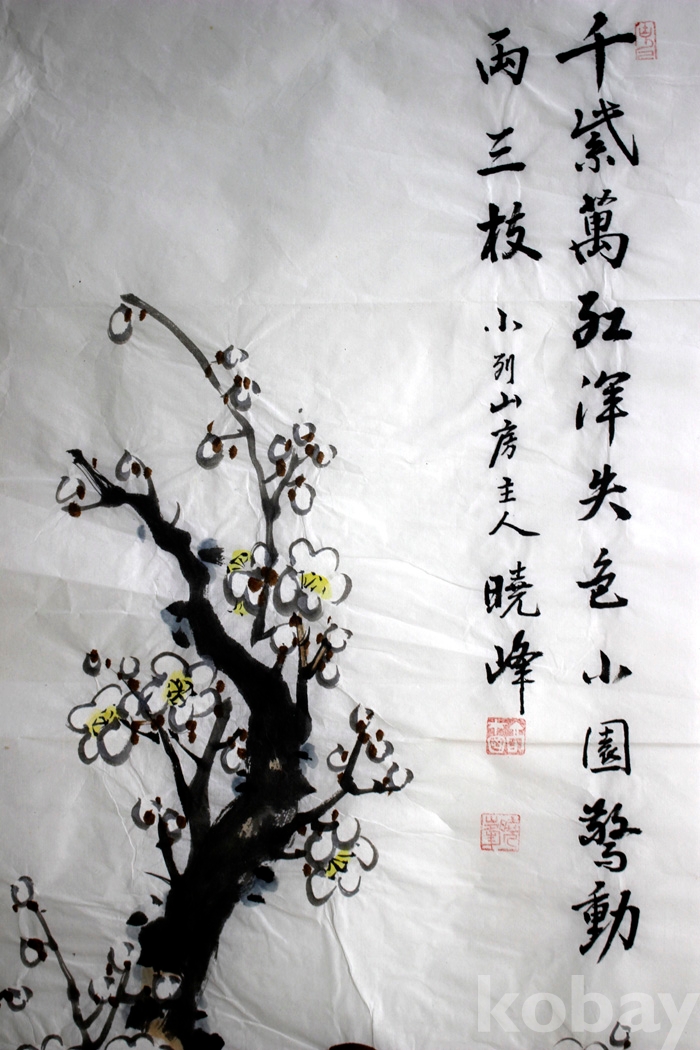 千紫萬紅渾失色小園驚動
兩三枝 小列山房主人 曉峰
kobay